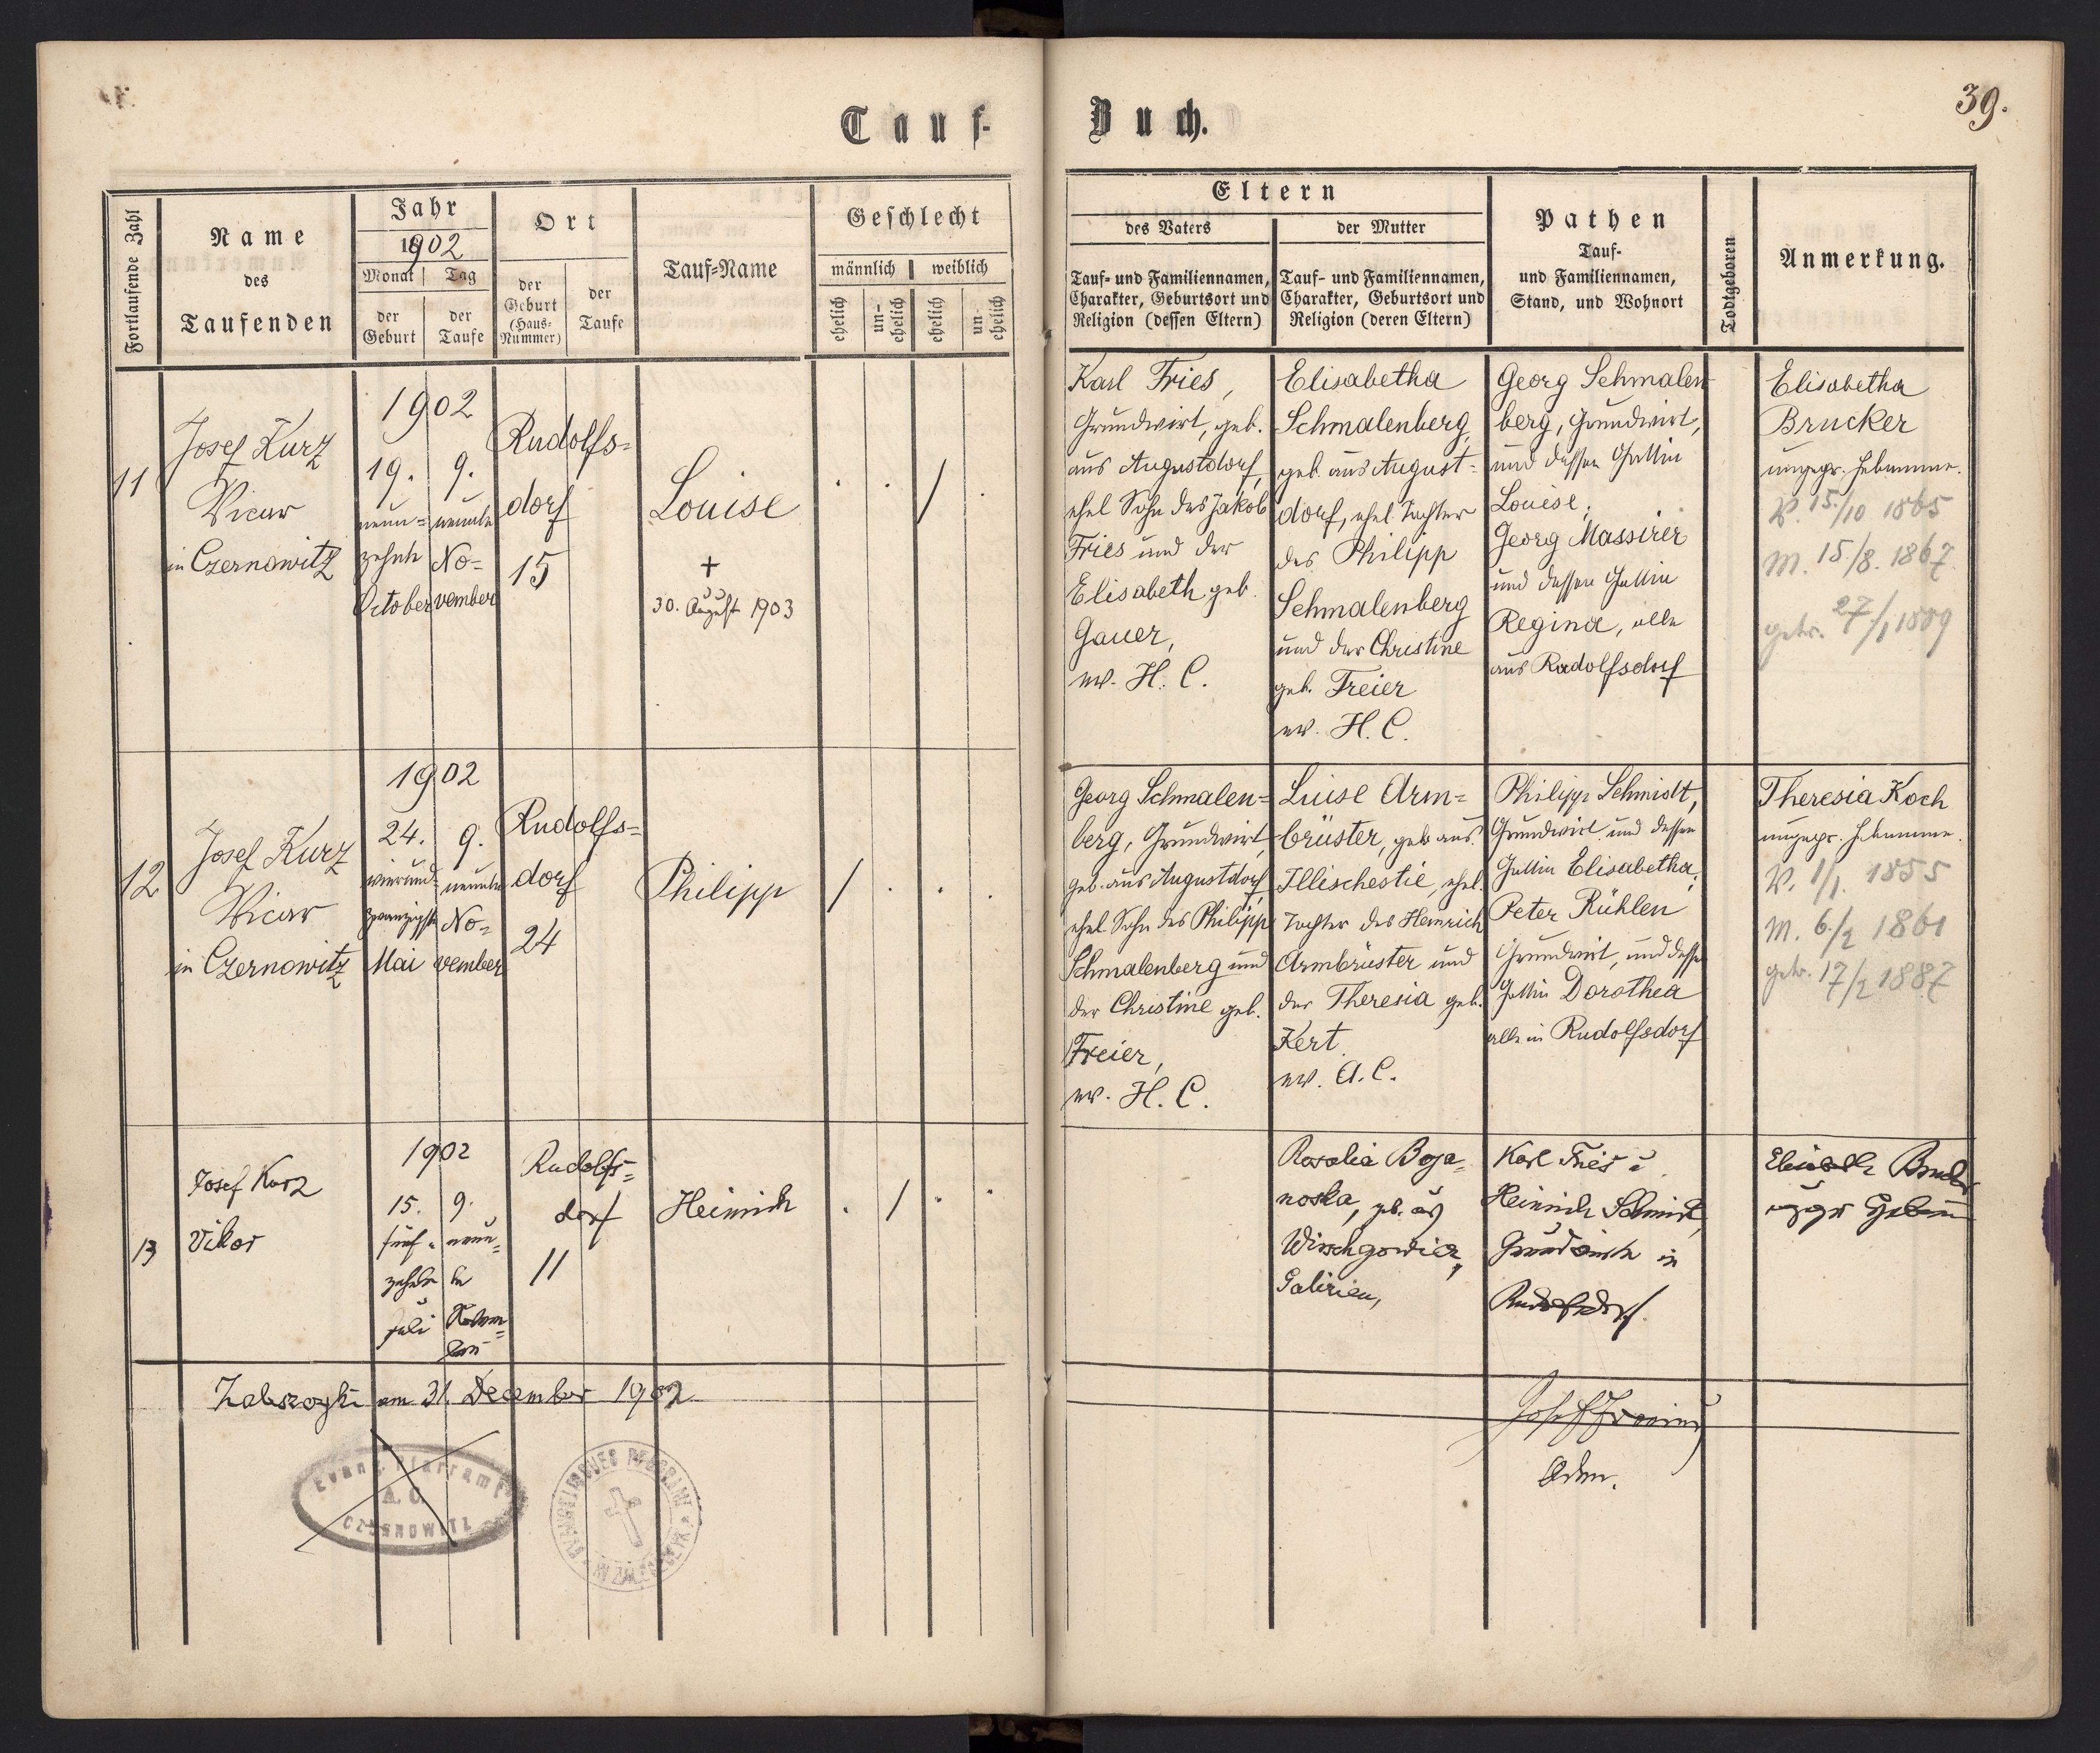 39.
Tauf-
Buch.
Fortlaufende Zahl
Name
des
Taufenden
Jahr
1902
Monat
Tag
der
Geburt
der
Taufe
Ort
der
Geburt
(Haus-
Nummer)
der
Taufe
Tauf-Name
Geschlecht
männlich
weiblich
ehelich
un-
ehelich
ehelich
un-
ehelich
Eltern
des Vaters
der Mutter
Tauf- und Familiennamen,
Charakter, Geburtsort und
Religion (dessen Eltern)
Tauf- und Familiennamen,
Charakter, Geburtsort und
Religion (deren Eltern)
Pathen
Tauf-
und Familiennamen,
Stand, und Wohnort
Todtgeboren
Anmerkung.
11
Josef Kurz
Vicar
in Czernowitz
1902
19.
neun-
zehnte
October
9.
neunte
No-
vember
Rudolfs-
dorf
15
Louise
+
30. August 1903
/
Karl Fries,
Grundwirt, geb.
aus Augustdorf,
ehel Sohn des Jakob
Fries und der
Elisabeth geb.
Gauer,
ev. H. C.
Elisabetha
Schmalenberg,
geb. aus August-
dorf, ehel. Tochter
des Philipp
Schmalenberg
und der Christine
geb. Freier
ev. H. C.
Georg Schmalen-
berg, Grundwirt,
und dessen Gattin
Louise;
Georg Massirer
und dessen Gattin
Regina, alle
aus Rudolfsdorf
Elisabetha
Brucker
ungepr. Hebamme.
V. 15./10 1865
M. 15./8. 1867
getr. 27/1 1889
12
Josef Kurz
Vicar
in Czernowitz
1902
24.
vierund-
zwanzigste
Mai
9.
neunte
No-
vember
Rudolfs-
dorf
24
Philipp
/
Georg Schmalen-
berg, Grundwirt,
geb. aus Augustdorf,
ehel. Sohn des Philipp
Schmalenberg und
der Christine geb.
Freier,
ev. H. C.
Luise Arm-
brüster, geb aus
Illischestie, ehel.
Tochter des Heinrich
Armbrüster und
der Theresia geb.
Kert
ev. A. C.
Philipp Schmidt,
Grundwirt und dessen
Gattin Elisabetha;
Peter Rühlen
Grundwirt, und dessen
Gattin Dorothea
alle in Rudolfsdorf
Theresia Koch
ungepr. Hebamme.
V. 1/1. 1855
M. 6./2 1861
getr. 17/2 1887
13
Josef Kurz
Vikar
1902
15.
fünf-
zehnte
Juli
9.
neun-
te
Novem-
ber
Rudolfs-
dorf
11
Heinrich
/
Rosalia Boja-
noska, geb. aus
Galizien,
Karl Fries u.
Heinrich Schmidt,
Grundwirte in
Rudolfsdorf.
Elisabeth Brucker
am 31. December 1902
Josef
Evang. Pfarramt
A. C.
CZERNOWITZ
EVANGELISCHES PFARRAMT